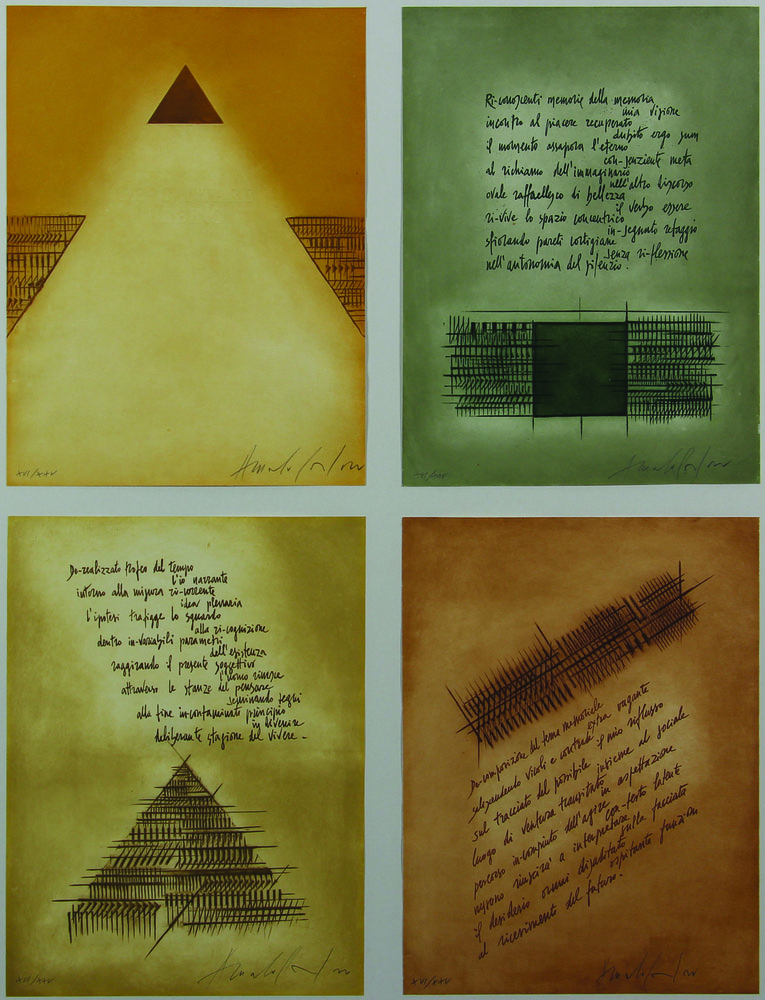 XVI/XXV
Ri-conoscenti memorie della memoria
mia visione
incontro al piacere recuperato
dubito ergo sum
il momento assapora l'eterno
con-senziente meta
al richiamo dell'immaginario
nell'altro discorso
ovale raffaellesco di bellezza
il verbo essere
ri-vive lo spazio concentrico
in-segnato retaggio
sfiorando pareti cortigiane
senza ri-flessione
nell'autonomia del silenzio.
XVI/XXV
De-realizzato trofeo del tempo
l'io narrante
intorno alla misura ri-corrente
idea plenaria
l'ipotesi trafigge lo sguardo
alla ri-cognizione
dentro in-variabili parametri
dell'esistenza
raggirando il presente soggettivo
l'uomo riuesce
attraverso le stanze del pensare
seminando segni
alla fine in-contaminato principio
in divenire
deliberante stagione del vivere.
XVI/XXV
De-composizione del tema memoriale
selezionando vicoli e contrade extra vagante
sul tracciato del possibile il mio riflusso
luogo di ventura transitato insieme al sociale
percorso in-compiuto dell'agire in aspettazione
nessuno riuscirà a interpretare con-testo latente
il desiderio ormai disabitato sulla facciata
al ricevimento del futuro. ospitante funzioni
XVI/XXV